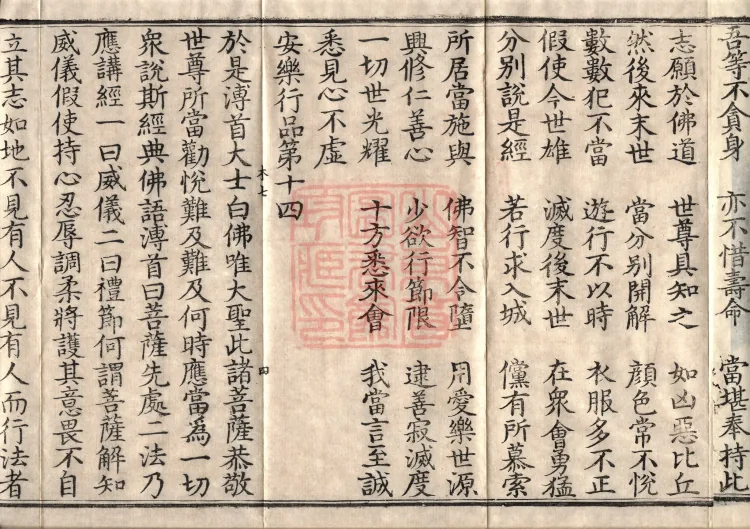 吾等不貪身　亦不惜壽命　當堪奉持此
志願於佛道　世尊具知之　如凶惡比丘
然後來末世　當分別開解　顏色常不悅
數數犯不當　遊行不以時　衣服多不正
假使今世雄　滅度後末世　在衆會勇猛
分別說是經　若行求入城　儻有所慕索
所居當施與　佛智不令墮　用愛樂世源
興修仁善心　少欲行節限　逮善寂滅度
一切世光耀　十方悉來會　我當言至誠
悉見心不虛
安樂行品第十四
木七　四
於是溥首大士白佛唯大聖此諸菩薩恭敬
世尊所當勸悅難及難及何時應當爲一切
衆說斯經典佛語溥首曰菩薩先處二法乃
應講經一曰威儀二曰禮節何謂菩薩解知
威儀假使持心忍辱調柔將護其意畏不自
立其志如地不見有人不見有人而行法者